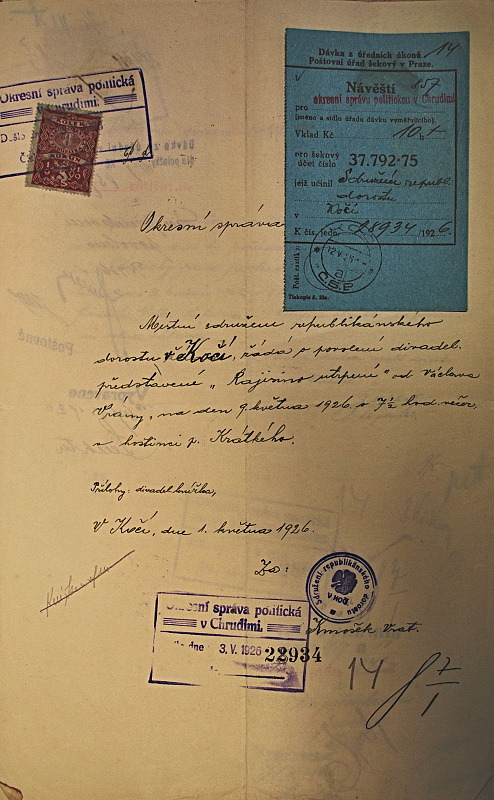 Okresní správa politická
v Chrudimi.
KOLEK
Dávka z úředních úkonů. 14
Poštovní úřad šekový v Praze.
Návěští 857
pro okresní správu politickou v Chrudimi
(jméno a sídlo úřadu dávku vyměřujícího).
Vklad Kč 10 h
pro šekový
účet číslo 37.792-75
jejž učinil Sdružení republ.
dorostu
v Kočí
K čís. jedn. 18934/1926.
12.V.
Č.S.P.
Tiskopis č.
Okresní správa
Místní sdružení republikánského
dorostu v Kočí, žádá o povolení divadel.
představené „Rajzivino utrpení" od Václava
Vrany, na den 9 května 1926 o 7½ hod. večer,
v hostinci p. Krátkého.
Přílohy: divadel. knížka,
V Kočí, dne 1. května 1926.
Za:
Sdružení republikánského dorostu
V KOČÍ
Kmošek Vrat.
Okresní správa politická
v Chrudimi.
dne 3. V. 1926 22934
14